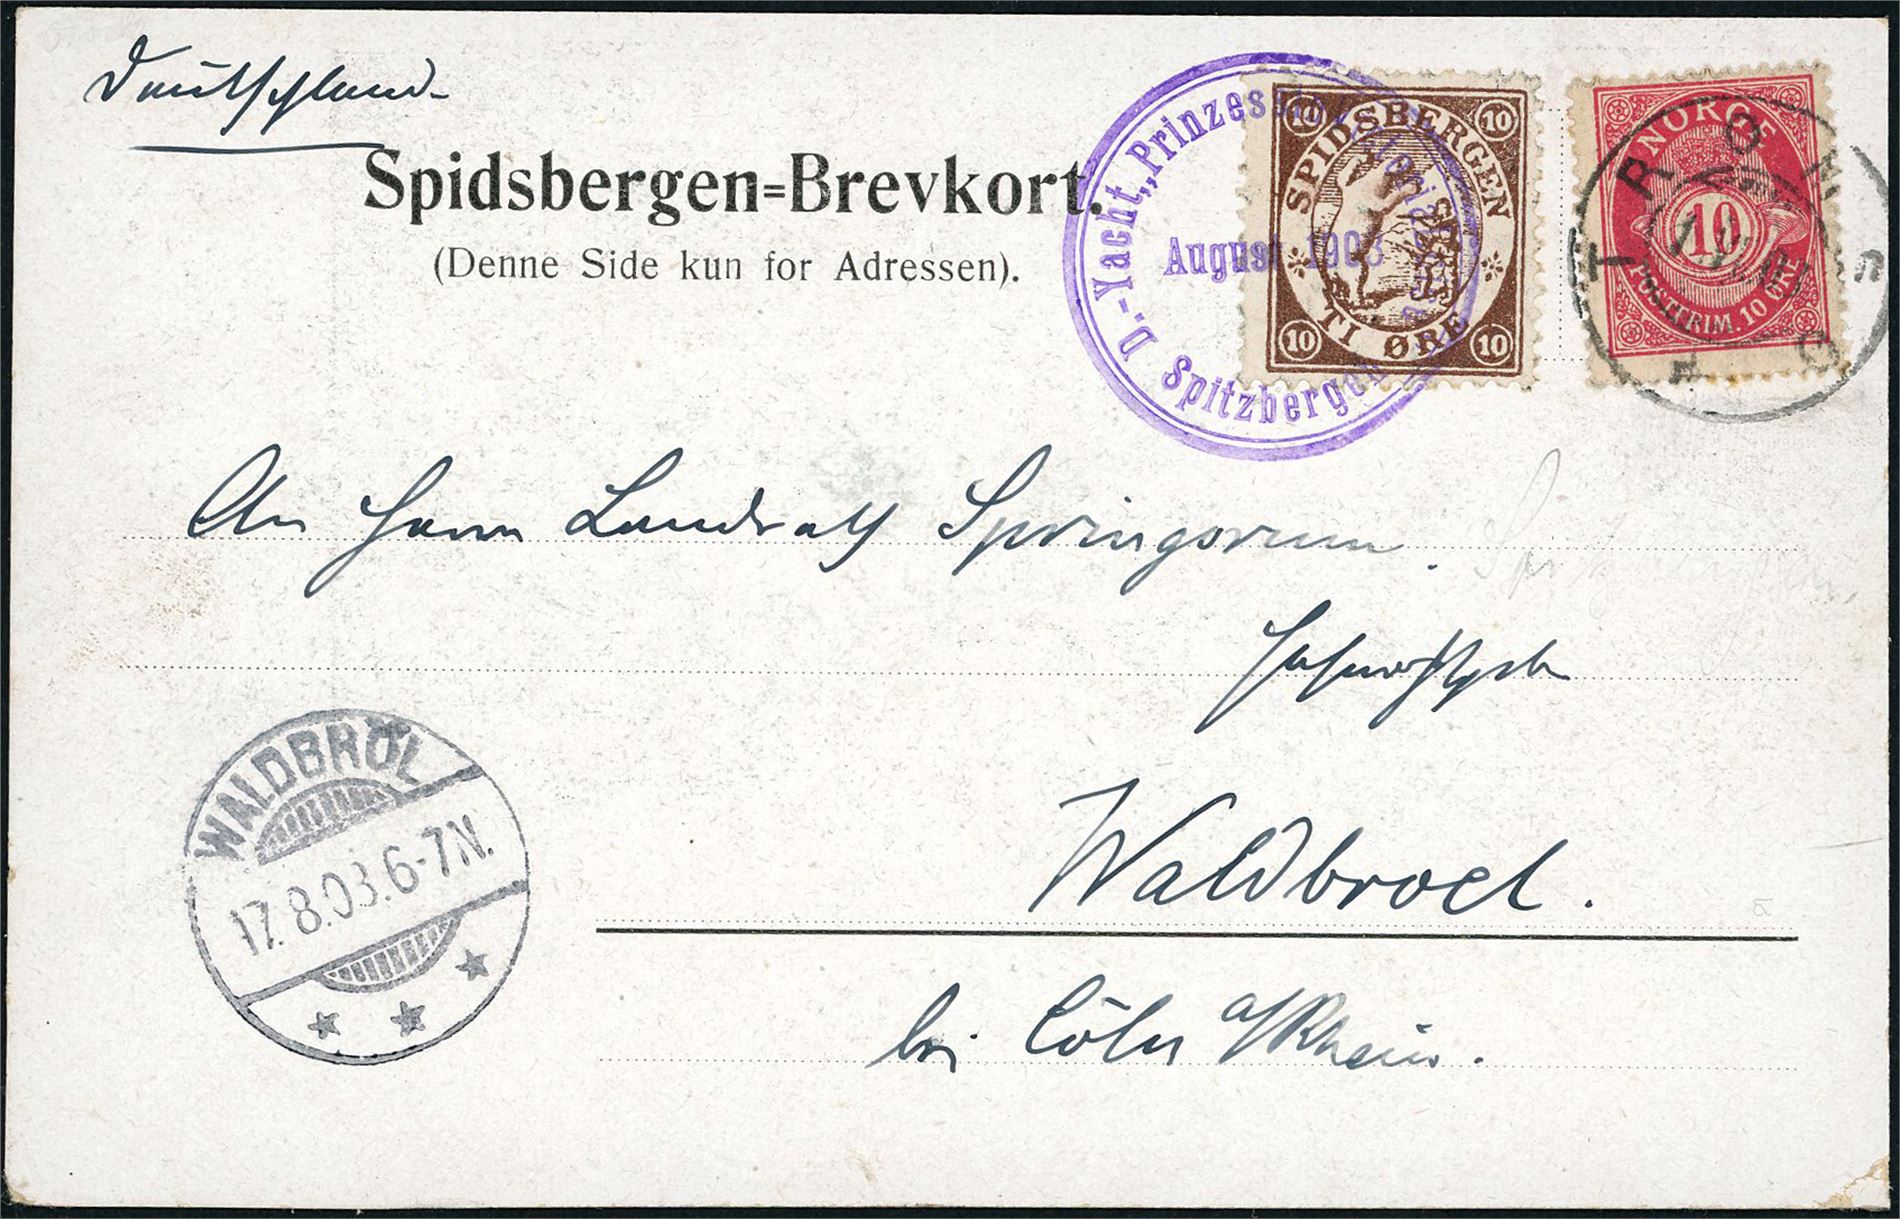 Deutschland
Spidsbergen=Brevkort.
(Denne Side kun for Adressen).
D.-Yacht „Prinzessin Victoria Luise"
August 1903
Spitzbergen
10 10
SPIDSBERGEN
TI ØRE
10 10
NORGE
10
POSTFRIM. 10 ØRE
TROMSØ
An Herrn Landrath Springorum.
Waldbroel.
bei Cöln a/Rhein.
WALDBRÖL
17.8.03.6-7N.